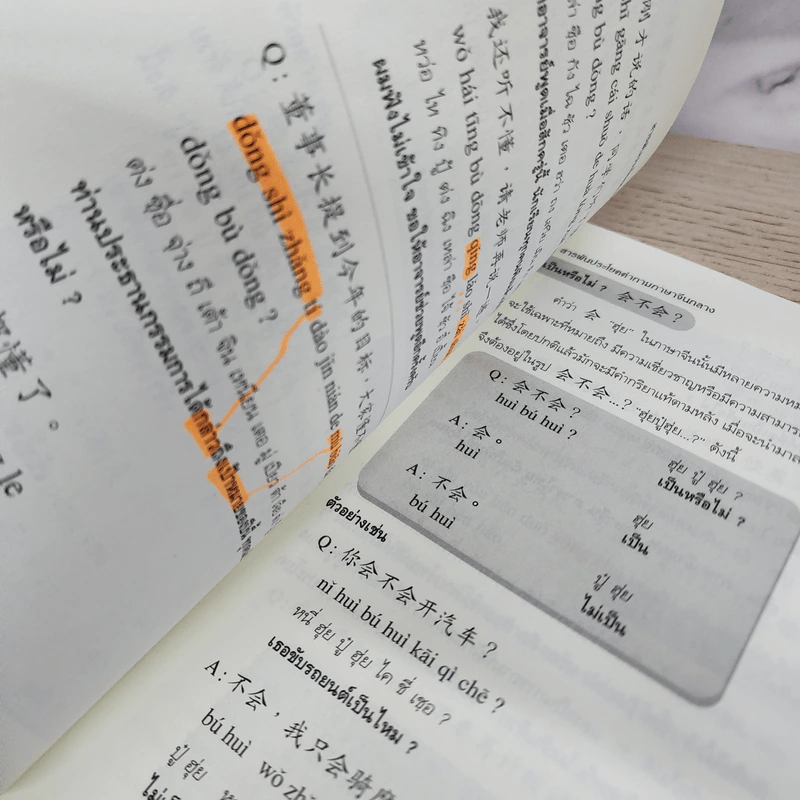 刚才说的话，同学
shī gāng cái shuō de huà
bù dǒng ?
我还听不懂，请老师再说一
wǒ hái tīng bù dǒng qǐng lǎo shī zài
หว่อ ไห ทิง ปู้ ต่ง ฉิ่ง เหล่า ซือ ไจ้
ผมฟังไม่เข้าใจ ขอให้อาจารย์ช่วยพูดอีกครั้งหนึ่ง
Q: 董事长提到今年的目标，大家
dǒng shì zhǎng tí dào jīn nián de
dǒng bù dǒng ?
ต่ง ซื่อ จ่าง ถี เต้า จิน เหนียน เตอ มู่ เปียว
ท่านประธานกรรมการได้กล่าวถึงเป้าหมายของปีนี้
หรือไม่ ?
懂了。
le
สารพันประโยคคำถามภาษาจีนกลาง
เป็นหรือไม่ ? 会不会？
คำว่า 会 "ฮุ่ย" ในภาษาจีนนั้นมีหลายความหม
จะใช้เฉพาะที่หมายถึง มีความเชี่ยวชาญหรือมีความสามาร
ได้ซึ่งโดยปกติแล้วมักจะมีคำกริยาแท้ตามหลัง เมื่อจะนำมาส
จึงต้องอยู่ในรูป 会不会..? "ฮุ่ยปู๋ฮุ่ย...?" ดังนี้
Q: 会不会？
huì bú huì ?
ฮุ่ย ปู๋ ฮุ่ย ?
เป็นหรือไม่ ?
A: 会。
huì
ฮุ่ย
เป็น
A: 不会。
bú huì
ปู๋ ฮุ่ย
ไม่เป็น
ตัวอย่างเช่น
Q: 你会不会开汽车？
nǐ huì bú huì kāi qì chē ?
หนี่ ฮุ่ย ปู๋ ฮุ่ย ไค ชี่ เชอ ?
เธอขับรถยนต์เป็นไหม ?
A: 不会，我只会骑摩
bú huì wǒ zhǐ
ปู๋ ฮุ่ย